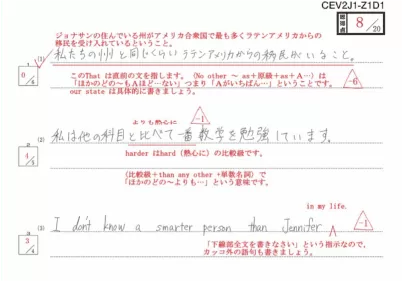 CEV2J1-Z1D1
得点 8 /20
ジョナサンの住んでいる州がアメリカ合衆国で最も多くラテンアメリカからの
移民を受け入れているということ。
(1) 私たちの州と同じくらいラテンアメリカからの移民がいること。
0/6
このThat は直前の文を指します。〈No other ～ as+原級+as+A …〉は
「ほかのどの～もAほど…ない」つまり「Aがいちばん…」ということです。
our state は具体的に書きましょう。
-6
よりも熱心に
-1
(2) 私は他の科目と比べて一番数学を勉強しています。
4/5
harder はhard（熱心に）の比較級です。
〈比較級+than any other +単数名詞〉で
「ほかのどの～よりも…」という意味です。
in my life.
(3) I don't know a smarter person than Jennifer
-1
3/4
「下線部全文を書きなさい」という指示なので、
カッコ外の語句も書きましょう。